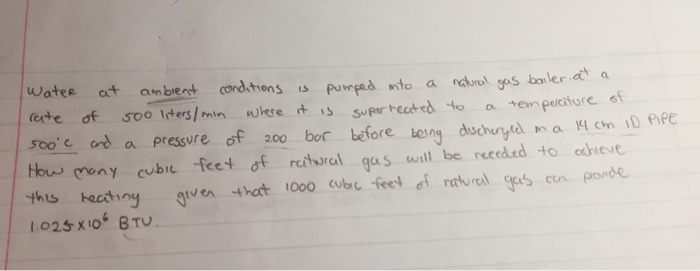 Water at ambient conditions is pumped into a natural gas boiler at a
rate of 500 liters/min where it is superheated to a temperature of
500°C and a pressure of 200 bar before being discharged in a 14 cm ID PIPE
How many cubic feet of natural gas will be needed to achieve
this heating given that 1000 cubic feet of natural gas can provide
1.025 x 10⁶ BTU.